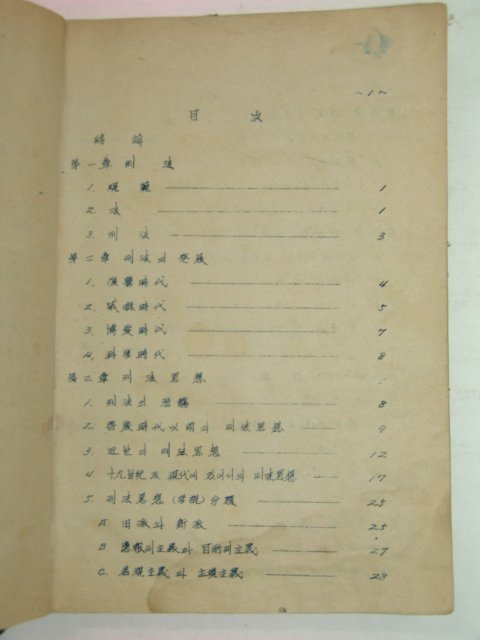 ~1~
目 次
緖 論
第一章 刑 法
1. 規 範 1
2. 法 1
3. 刑 法 3
第二章 刑法의 発展
1. 復讐時代 4
2. 威嚇時代 5
3. 博愛時代 7
4. 科学時代 8
第三章 刑法思想
1. 刑法의 8
2. 啓蒙時代以前의 刑法思想 9
3. 近世의 刑法思想 12
4. 十九世紀 及 現代에 있어서의 刑法思想 17
5. 刑法思想 (学説) 分類 25
A. 旧派와 新派 25
B. 應報刑主義와 目的刑主義 27
C. 客観主義와 主観主義 29